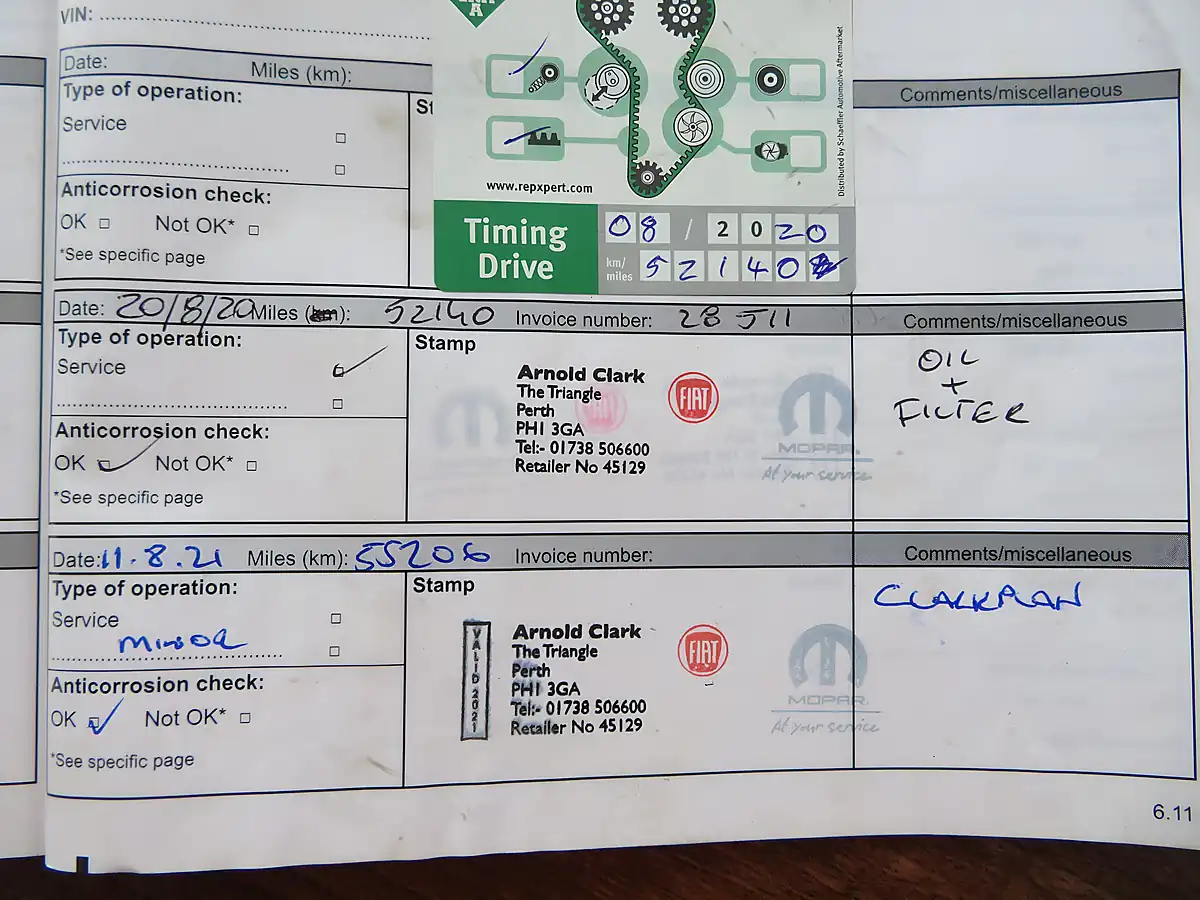 VIN:
Date: Miles (km):
Type of operation:
Service
Anticorrosion check:
OK Not OK*
*See specific page
A
www.repxpert.com
Distributed by Schaeffler Automotive Aftermarket
Timing
Drive
08 / 2020
km/
miles
52140
Comments/miscellaneous
Date: 20/8/20 Miles (km): 52140 Invoice number: 28511 Comments/miscellaneous
Type of operation:
Service
Anticorrosion check:
OK Not OK*
*See specific page
Stamp
Arnold Clark
The Triangle
Perth
PH1 3GA
Tel:- 01738 506600
Retailer No 45129
FIAT
MOPAR.
At your service
OIL
+
FILTER
Date: 11.8.21 Miles (km): 55206 Invoice number: Comments/miscellaneous
Type of operation:
Service
Minor
Anticorrosion check:
OK Not OK*
*See specific page
Stamp
VALID 2021
Arnold Clark
The Triangle
Perth
PH1 3GA
Tel:- 01738 506600
Retailer No 45129
FIAT
MOPAR.
At your service
CLARKPLAN
6.11